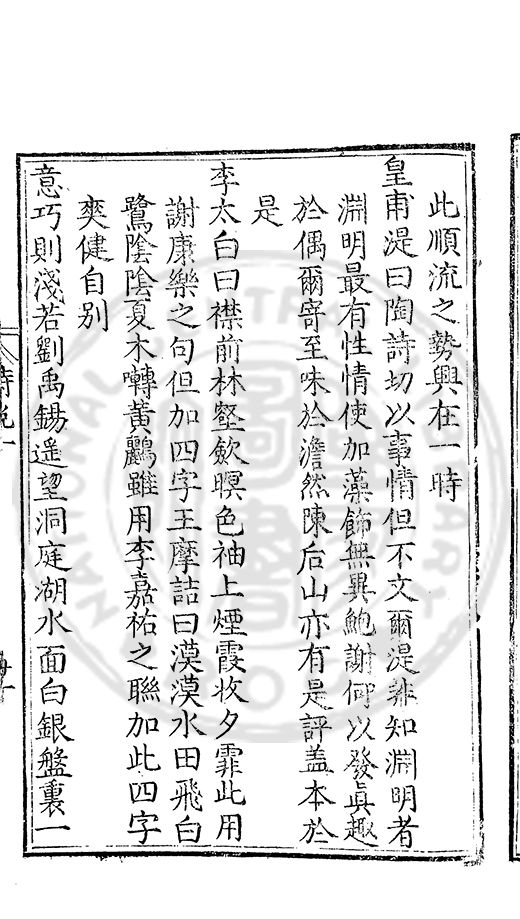 此順流之勢興在一時
皇甫湜曰陶詩切以事情但不文爾湜非知淵明者
淵明最有性情使加藻飾無異鮑謝何以發眞趣
於偶爾寄至味於澹然陳后山亦有是評盖本於
是
李太白曰襟前林壑歛暝色袖上煙霞收夕霏此用
謝康樂之句但加四字王摩詰曰漠漠水田飛白
鷺陰陰夏木囀黃鸝雖用李嘉祐之聯加此四字
爽健自别
意巧則淺若劉禹錫遥望洞庭湖水面白銀盤裏一